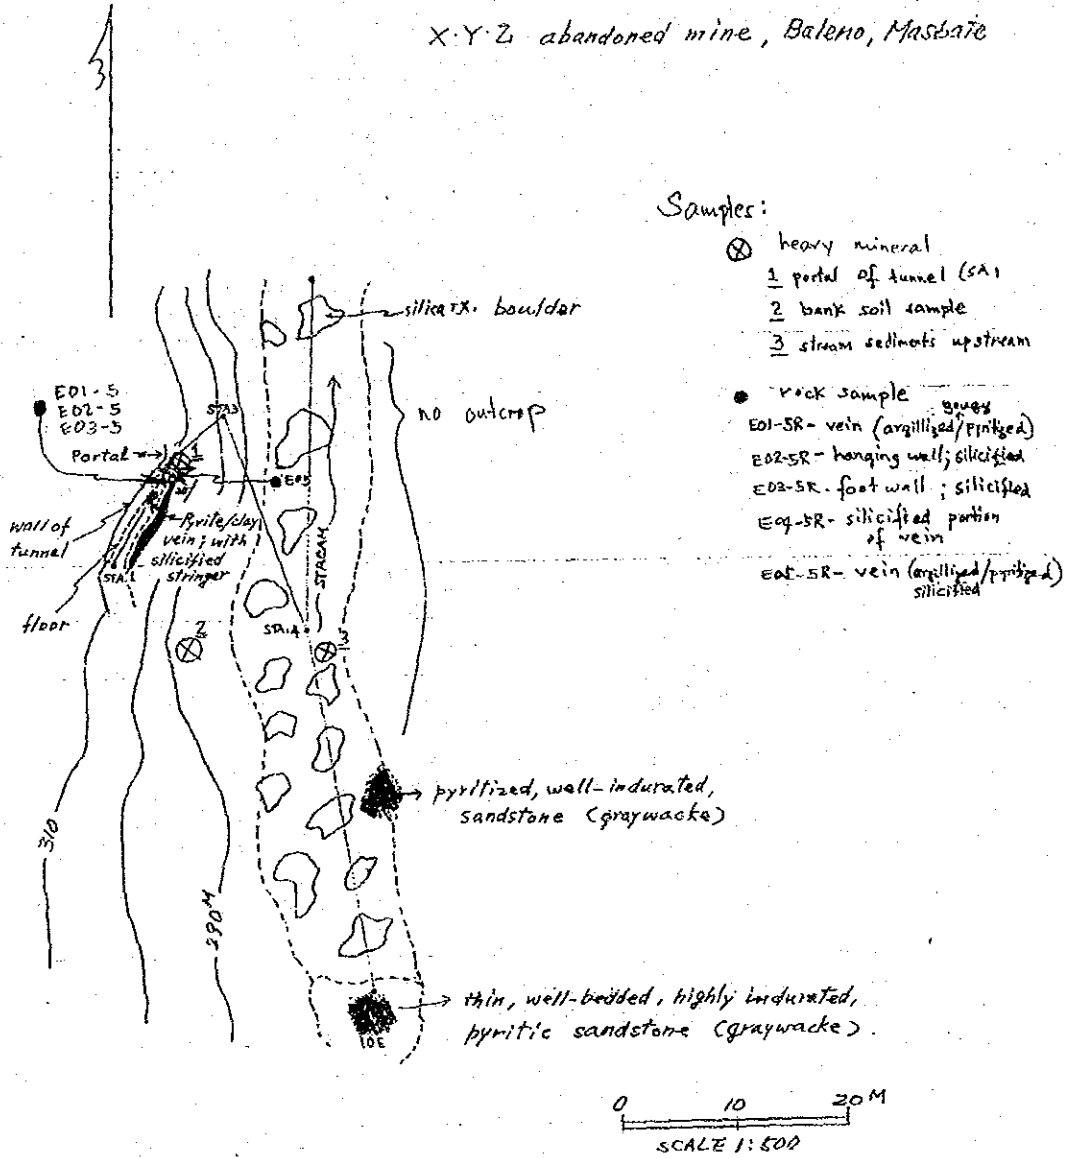 X.Y.Z abandoned mine, Baleno, Masbate
Samples:
⊗ heavy mineral
1 portal of tunnel (SA1
2 bank soil sample
3 stream sediments upstream
● rock sample
gouge
E01-5R- vein (argillized/pyritized)
E02-5R- hanging wall; silicified
E03-5R. foot wall ; silicified
E04-5R- silicified portion
of vein
E05-5R- vein (argillized/pyritized)
silicified
silica boulder
no outcrop
E01-5
E02-5
E03-5
STA3
Portal
1
E05
wall of
tunnel
Pyrite/clay
vein; with
silicified
stringer
STREAM
floor
2
STA.4
3
pyritized, well-indurated,
sandstone (graywacke)
310
290M
thin, well-bedded, highly indurated,
pyritic sandstone (graywacke).
10E
0 10 20 M
SCALE 1:500